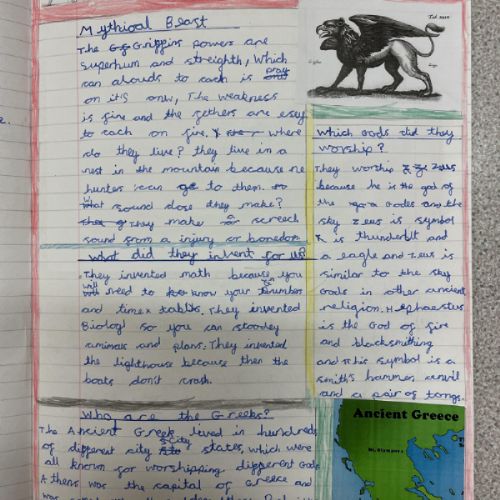 Mythical Beast
The Grippins powers are
superhum and streighth, which
can alouds to each is pray
on it's own, The weakness
is fire and the fethers are esey
to catch on fire. where
do they live? they live in a
nest in the mountain because no
hunter can go to them.
What sound dose they make?
They make a screech
sound from a injury or boredom
What did they invent for us?
They invented math because you
will need to know your number
and timex tables. They invented
Biologi so you can stooley
animals and plans. They invented
the lighthouse because then the
boats don't crash.
Who are the Greeks?
The Ancient Greek lived in hundreds
of different city states, which were
all known for worshipping different Gods
Athens was the capital of Greece and
which Gods did they
worship?
They worship Zeus
because he is the god of
the Godes and the
sky Zeus is symbol
is thunderbolt and
a eagle and Zeus is
similar to the sky
Gods in other ancient
religion. Hephaestus
is the God of fire
and blacksmithing
and this symbol is a
smith's hammer, anvil
and a pair of tongs.
Ancient Greece